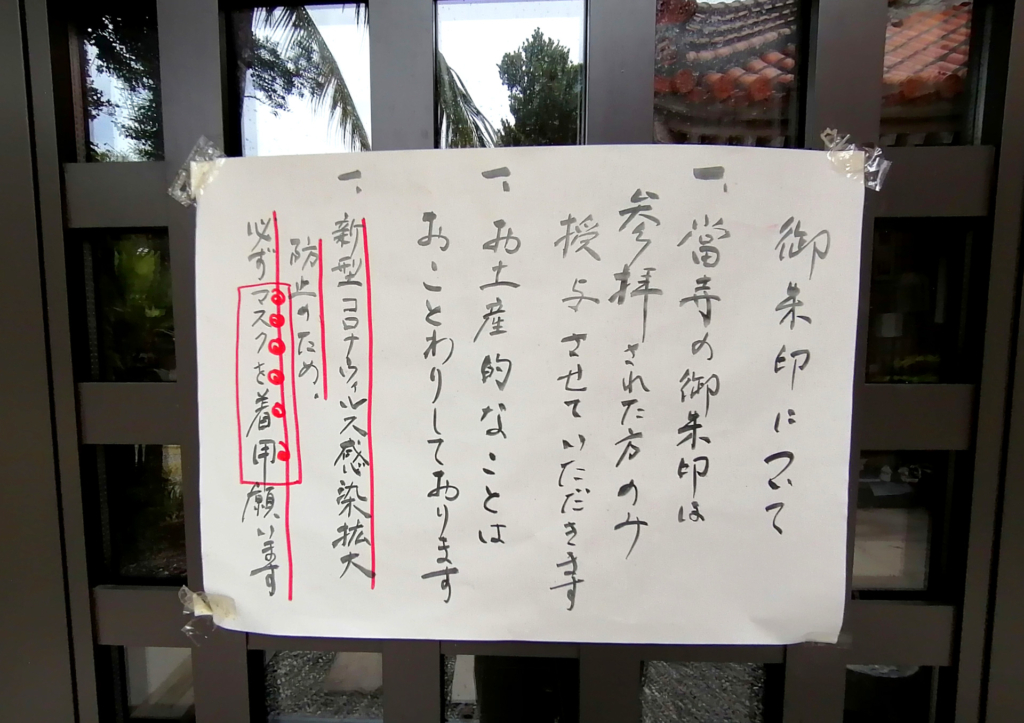 御朱印について
一、當寺の御朱印は
参拝された方のみ
授与させていただきます
一、お土産的なことは
おことわりしております
一、新型コロナウィルス感染拡大
防止のため、
必ずマスクを着用願います